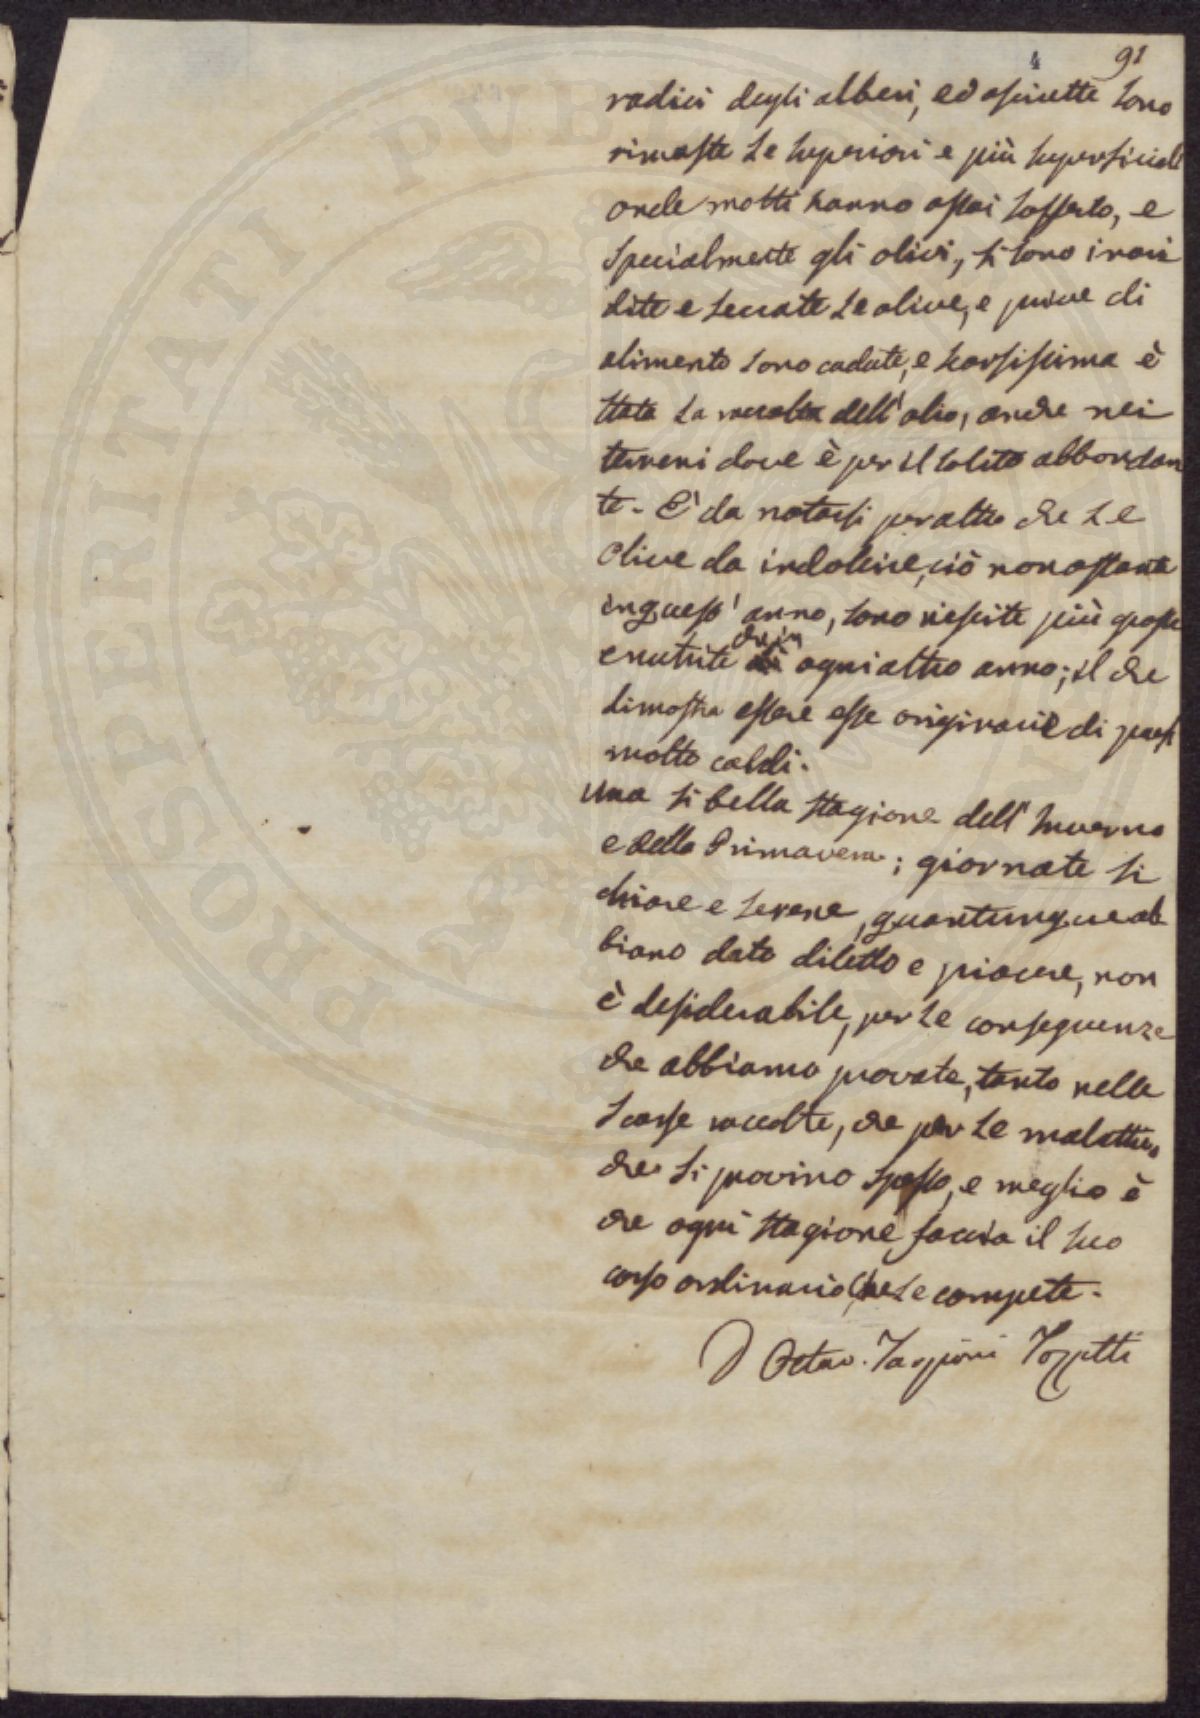 4 91
radici degli alberi, ed asciutte sono
rimaste le superiori e più superficiali
onde molti hanno assai sofferto, e
specialmente gli olivi, si sono inari
dite e seccate le olive, e prive di
alimento sono cadute, e scarsissima è
stata la raccolta dell'olio, anche nei
terreni dove è per il solito abbondan
te. E' da notarsi peraltro che le
Olive da indolcire, ciò nonostante
in quest'anno, sono riescite più grosse
e nutrite che in ogni altro anno; il che
dimostra essere esse originarie di paesi
molto caldi.
Una si bella stagione dell'Inverno
e della Primavera; giornate si
chiare e serene, quantunque ab
biano dato diletto e piacere, non
è desiderabile, per le conseguenze
che abbiamo provate, tanto nelle
scarse raccolte, che per le malattie,
che si provino spesso, e meglio è
che ogni stagione faccia il suo
corso ordinario che le compete.
D Ottav. Targioni Tozzetti
PROSPERITATI